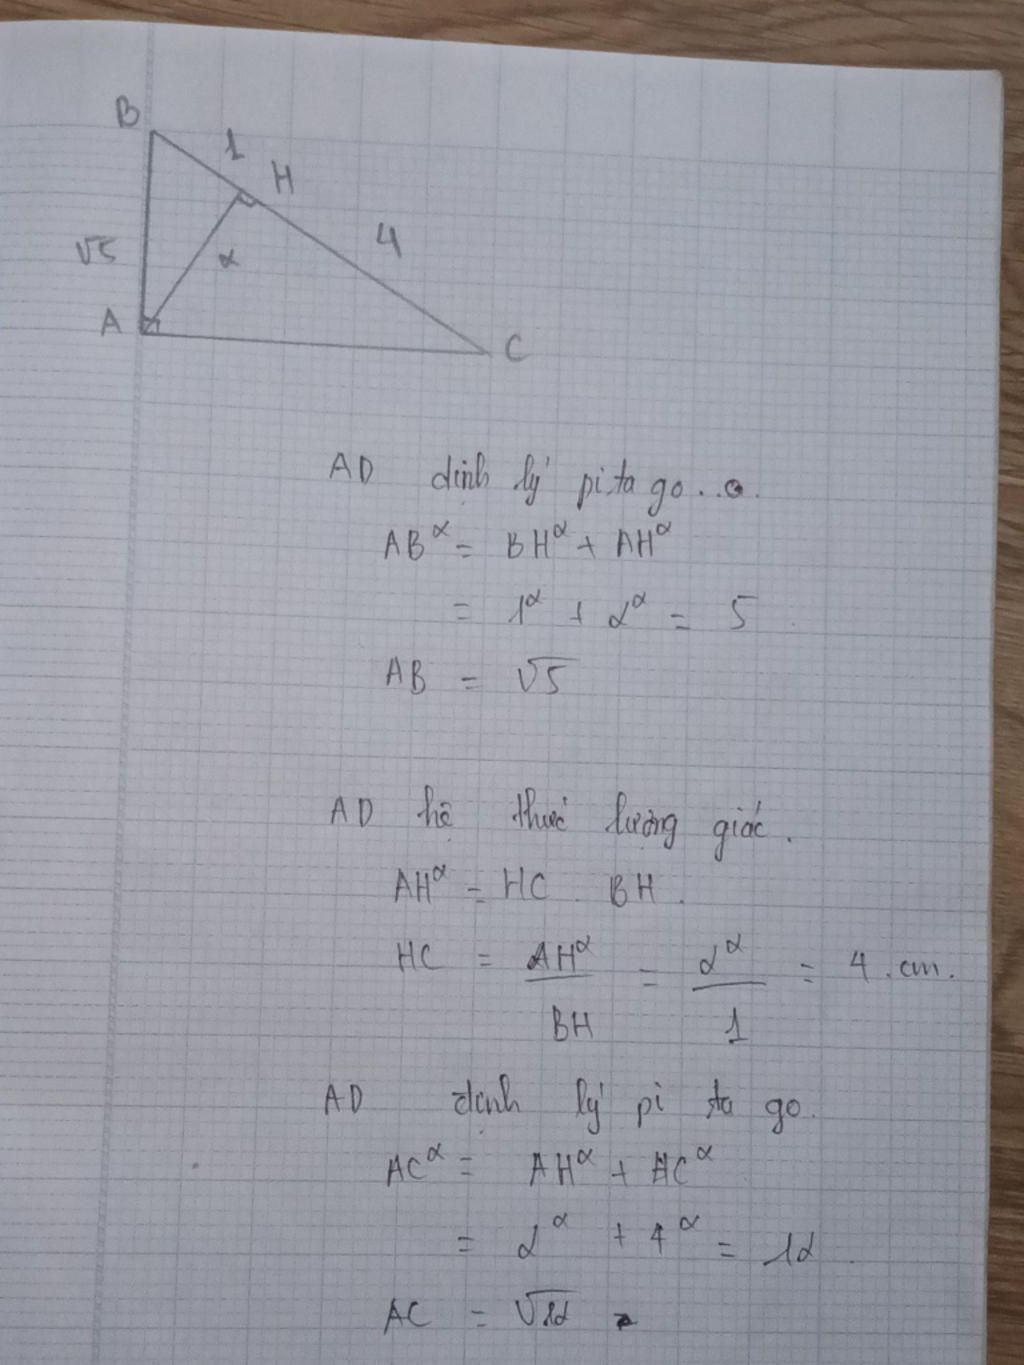 B
1
H
4
√5
2
A
C
AD định lý pi ta go...
AB² = BH² + AH²
= 1² + 2² = 5
AB = √5
AD hệ thức lượng giác.
AH² = HC . BH.
HC = AH²/BH = 2²/1 = 4 cm.
AD định lý pi ta go.
AC² = AH² + HC²
= 2² + 4² = 12
AC = √12